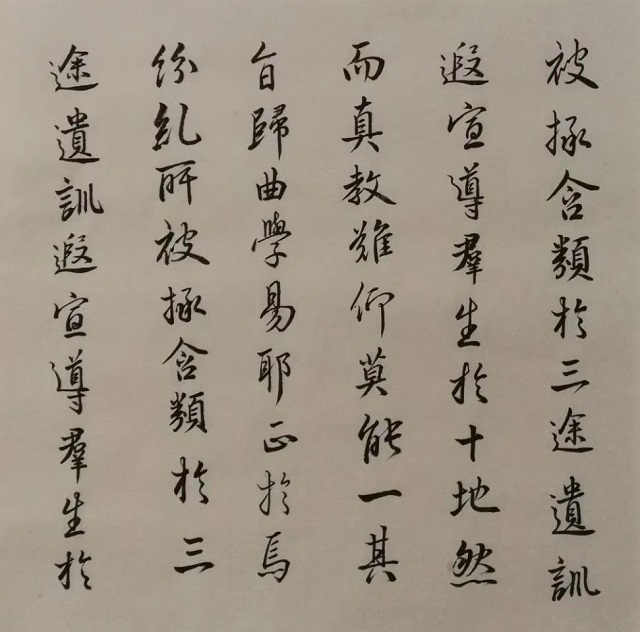 被拯含類於三途遺訓
遐宣導羣生於十地然
而真教難仰莫能一其
旨歸曲學易耶正於焉
紛糺所被拯含類於三
途遺訓遐宣導羣生於